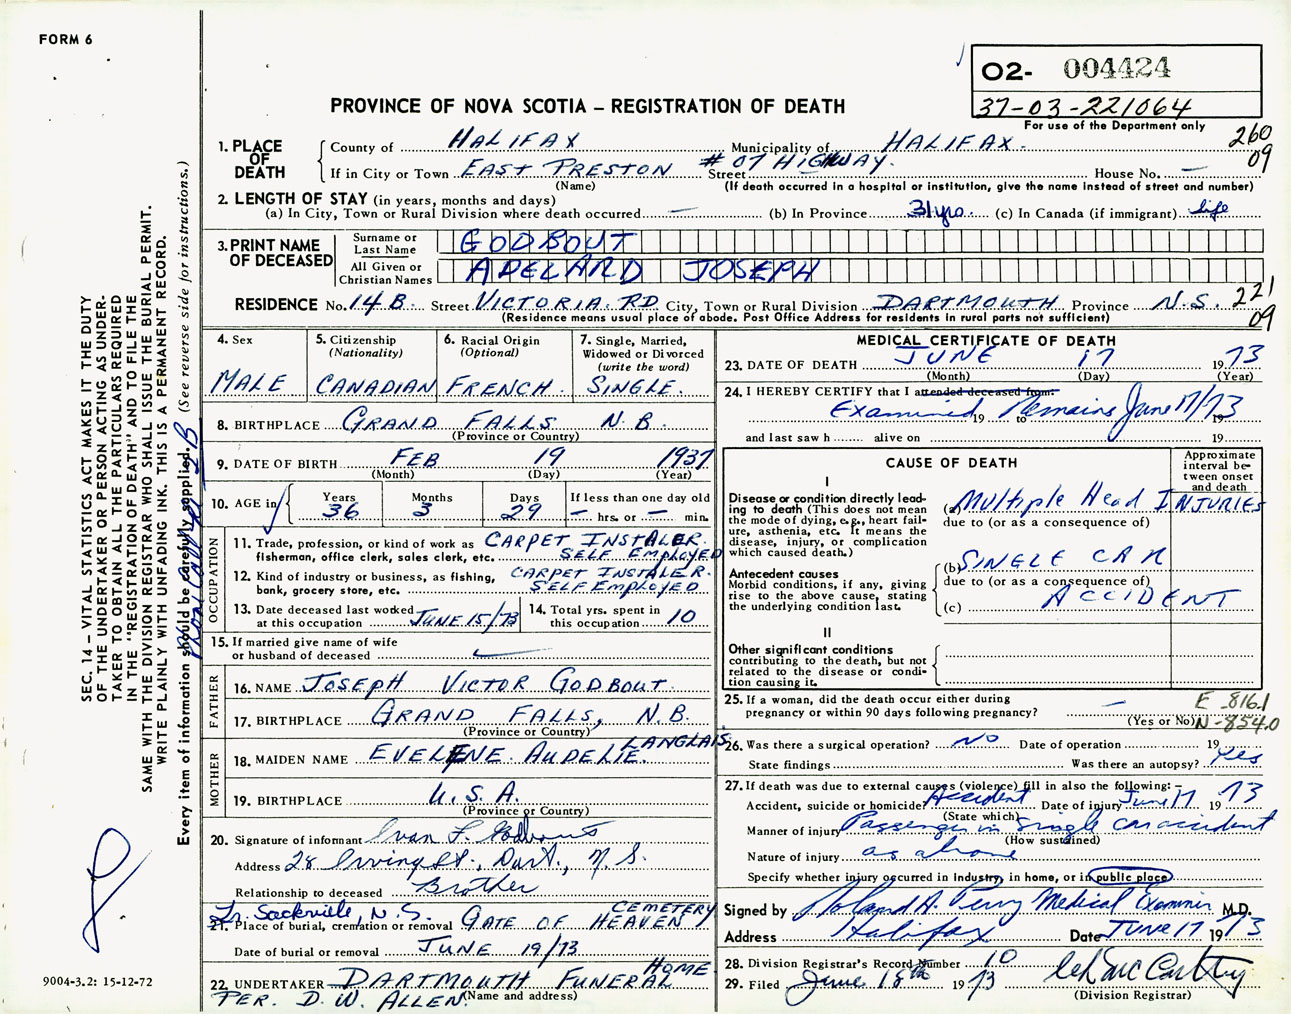 FORM 6
O2- 004424
37-03-221064
For use of the Department only
PROVINCE OF NOVA SCOTIA – REGISTRATION OF DEATH
260
09
1. PLACE OF DEATH
County of HALIFAX Municipality of HALIFAX -
If in City or Town EAST PRESTON Street # 07 HIGHWAY. House No. —
(Name) (If death occurred in a hospital or institution, give the name instead of street and number)
2. LENGTH OF STAY (in years, months and days)
(a) In City, Town or Rural Division where death occurred — (b) In Province 31 yrs. (c) In Canada (if immigrant) life
3. PRINT NAME OF DECEASED
Surname or Last Name GODBOUT
All Given or Christian Names ADELARD JOSEPH
RESIDENCE No. 14 B. Street VICTORIA RD City, Town or Rural Division DARTMOUTH Province N.S. 221
(Residence means usual place of abode. Post Office Address for residents in rural parts not sufficient) 09
4. Sex MALE
5. Citizenship (Nationality) CANADIAN
6. Racial Origin (Optional) FRENCH.
7. Single, Married, Widowed or Divorced (write the word) SINGLE.
8. BIRTHPLACE GRAND FALLS N.B.
(Province or Country)
9. DATE OF BIRTH FEB 19 1937
(Month) (Day) (Year)
10. AGE in Years 36 Months 3 Days 29 If less than one day old — hrs. or — min.
OCCUPATION
11. Trade, profession, or kind of work as fisherman, office clerk, sales clerk, etc. CARPET INSTALER. SELF EMPLOYED
12. Kind of industry or business, as fishing, bank, grocery store, etc. CARPET INSTALER. SELF EMPLOYED
13. Date deceased last worked at this occupation JUNE 15/73
14. Total yrs. spent in this occupation 10
15. If married give name of wife or husband of deceased
FATHER
16. NAME JOSEPH VICTOR GODBOUT.
17. BIRTHPLACE GRAND FALLS, N.B.
(Province or Country)
MOTHER
18. MAIDEN NAME EVELENE AUDELIE. LANGLAIS.
19. BIRTHPLACE U.S.A.
(Province or Country)
20. Signature of informant Ivan L. Godbout
Address 28 Irving St., Dart., N.S.
Relationship to deceased Brother
Lr. Sackville, N.S.
21. Place of burial, cremation or removal GATE OF HEAVEN CEMETERY
Date of burial or removal JUNE 19/73
22. UNDERTAKER DARTMOUTH FUNERAL HOME
PER. D. W. ALLEN. (Name and address)
MEDICAL CERTIFICATE OF DEATH
23. DATE OF DEATH JUNE 17 1973
(Month) (Day) (Year)
24. I HEREBY CERTIFY that I attended deceased from:
Examined 19 to Remains June 17/73 19
and last saw h alive on 19
CAUSE OF DEATH
Approximate interval between onset and death
I
Disease or condition directly leading to death (This does not mean the mode of dying, e.g., heart failure, asthenia, etc. It means the disease, injury, or complication which caused death.)
(a) Multiple Head INJURIES
due to (or as a consequence of)
Antecedent causes
Morbid conditions, if any, giving rise to the above cause, stating the underlying condition last.
(b) SINGLE CAR
due to (or as a consequence of)
(c) ACCIDENT
II
Other significant conditions contributing to the death, but not related to the disease or condition causing it.
25. If a woman, did the death occur either during pregnancy or within 90 days following pregnancy? —
(Yes or No)
E-816.1
N-854.0
26. Was there a surgical operation? NO Date of operation 19
State findings Was there an autopsy? Yes
27. If death was due to external causes (violence) fill in also the following:—
Accident, suicide or homicide? Accident Date of injury June 17 1973
(State which)
Manner of injury Passenger in single car accident
(How sustained)
Nature of injury as above
Specify whether injury occurred in Industry, in home, or in public place
Signed by Roland A. Perry Medical Examiner M.D.
Address Halifax Date JUNE 17 1973
28. Division Registrar's Record Number 10
29. Filed June 18th 1973
(Division Registrar)
SEC. 14 – VITAL STATISTICS ACT MAKES IT THE DUTY
OF THE UNDERTAKER OR PERSON ACTING AS UNDER-
TAKER TO OBTAIN ALL THE PARTICULARS REQUIRED
IN THE "REGISTRATION OF DEATH" AND TO FILE THE
SAME WITH THE DIVISION REGISTRAR WHO SHALL ISSUE THE BURIAL PERMIT.
WRITE PLAINLY WITH UNFADING INK. THIS IS A PERMANENT RECORD.
Every item of information should be carefully supplied. (See reverse side for instructions.)
9004-3.2: 15-12-72